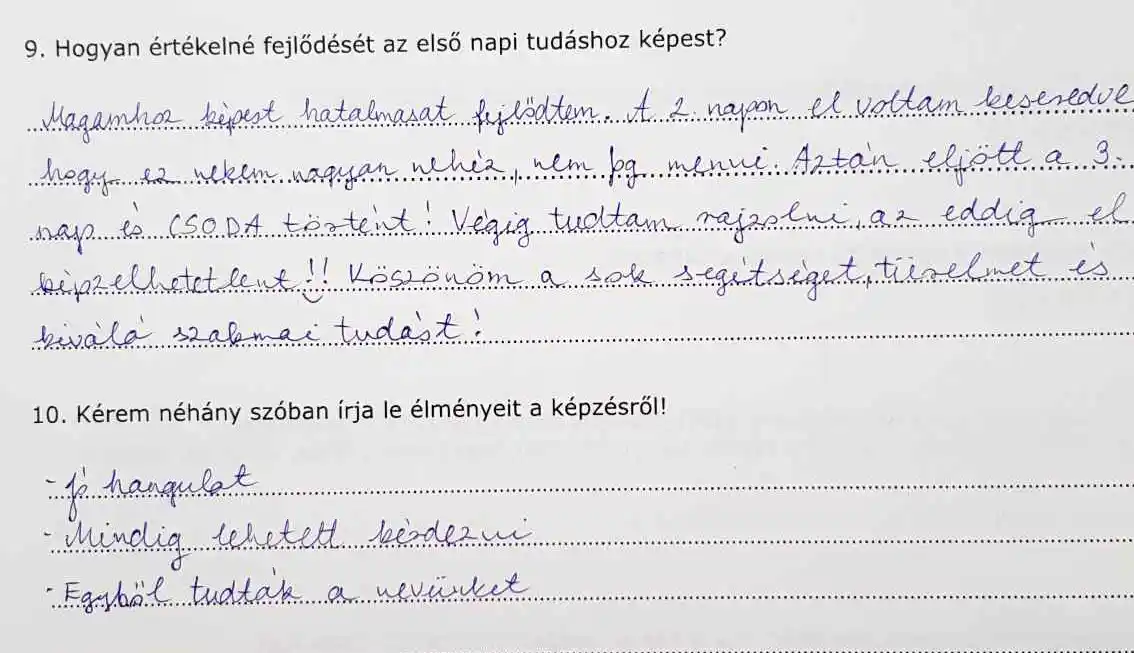 9. Hogyan értékelné fejlődését az első napi tudáshoz képest?
Magamhoz képest hatalmasat fejlődtem. A 2. napon el voltam keseredve
hogy ez nekem nagyon nehéz, nem fog menni. Aztán eljött a 3.
nap és CSODA történt! Végig tudtam rajzolni, az eddig el
képzelhetetlent!! Köszönöm a sok segítséget, türelmet és
kiváló szakmai tudást!
10. Kérem néhány szóban írja le élményeit a képzésről!
- Jó hangulat
- Mindig lehetett kérdezni
- Egyből tudták a nevünket